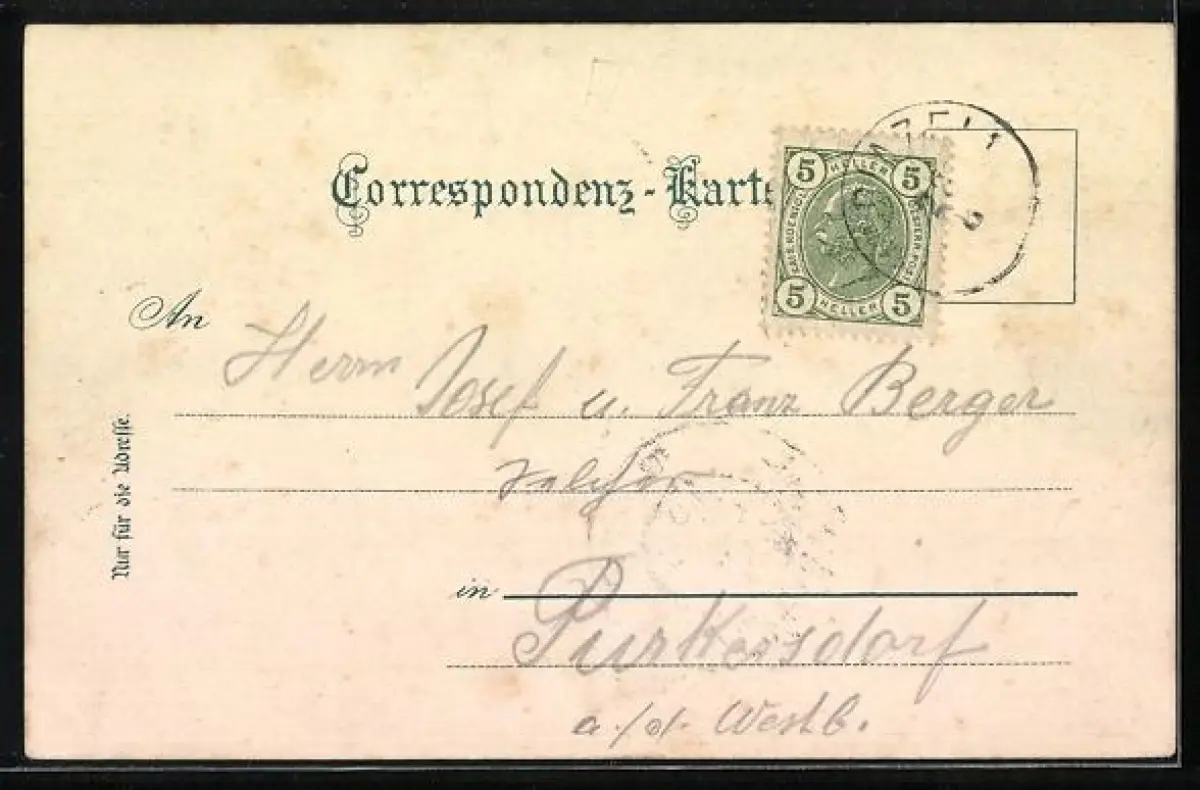 Correspondenz-Karte
5 HELLER 5
5 HELLER 5
An Herrn Josef u. Franz Berger
in
Purkersdorf
a./d. Westb.
Nur für die Adresse.